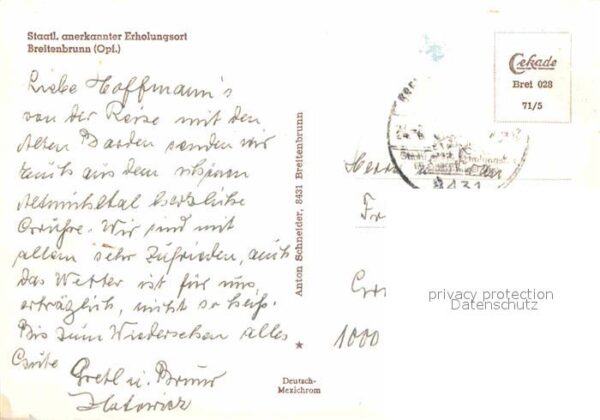 Staatl. anerkannter Erholungsort
Breitenbrunn (Opf.)
Liebe Hoffmann's
von der Reise mit den
Alten Barden senden wir
Euch aus dem schönen
Altmühltal herzliche
Grüße. Wir sind mit
allem sehr zufrieden, auch
das Wetter ist für uns
erträglich, nicht so heiß.
Bis zum Wiedersehen alles
Gute Gretl u. Bruno
Anton Schneider, 8431 Breitenbrunn
Deutsch-
Mexichrom
Cekade
Brei 028
71/5
8431
Herrn
Fr
1000
privacy protection
Datenschutz